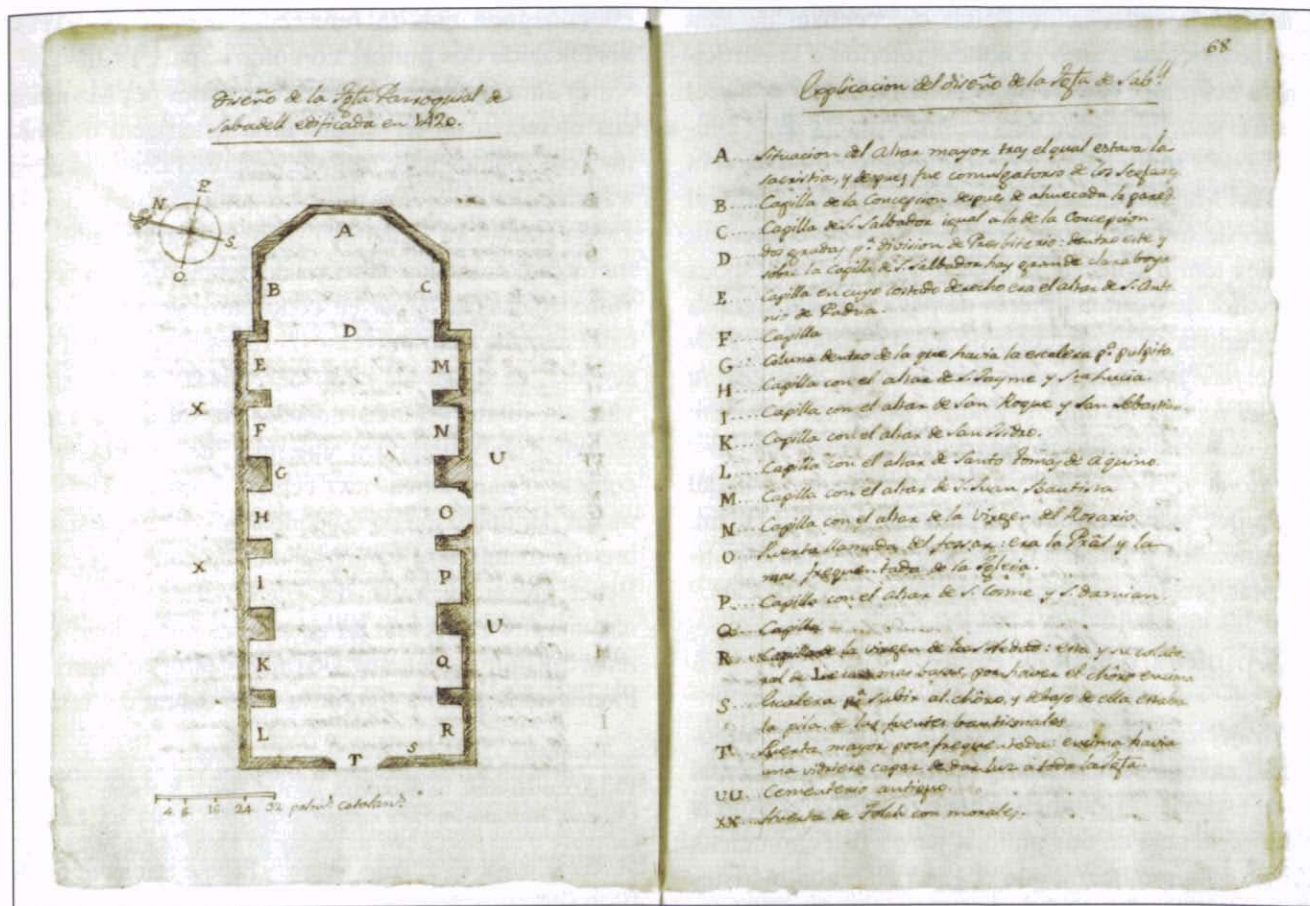 Diseño de la Igla Parroquial de
Sabadell edificada en 1420.
P
N
S
O
A
B C
D
E M
X F N
G U
H O
X I P
U
K Q
L R
T S
4 8 16 24 32 palm.s catalan.s
68
Explicacion del diseño de la Igla de Sab.ll
A.... Situacion del Altar mayor tras el qual estava la
sacristia, y despues fue comulgatorio de los Seglares
B.... Capilla de la Concepcion despues de ahuecada la pared
C.... Capilla de S. Salbador igual a la de la Concepcion
D.... dos gradas p.a division de Presbiterio: dentro este y
sobre la Capilla de S. Salbador hay grande claraboya
E.... Capilla en cuyo costado derecho era el altar de S. Anto-
nio de Padua.
F.... Capilla
G.... Coluna dentro de la que havia la escalera p.a pulpito.
H.... Capilla con el altar de S. Jayme y Sta Lucia.
I.... Capilla con el altar de San Roque y San Sebastian
K.... Capilla con el altar de San Isidro.
L.... Capilla con el altar de Santo Tomas de Aquino.
M.... Capilla con el altar de S. Juan Bautista
N.... Capilla con el altar de la Virgen del Rosario.
O.... Puerta llamada del fossar: era la Pral y la
mas frequentada de la Iglesia.
P.... Capilla con el altar de S. Cosme y S. Damian
Q.... Capilla
R.... Capilla de la Virgen de los : esta y su
de L mas baxas, por haver el chôro encima
S.... Escalera p.a subir al chôro, y debajo de ella estaba
la pila de las fuentes bautismales
T.... Puerta mayor poco frequentada: encima havia
una vidriera capaz de dar luz a toda la Igla.
UU.... Cementerio antiguo.
XX.... Huerta de Folch con morales.